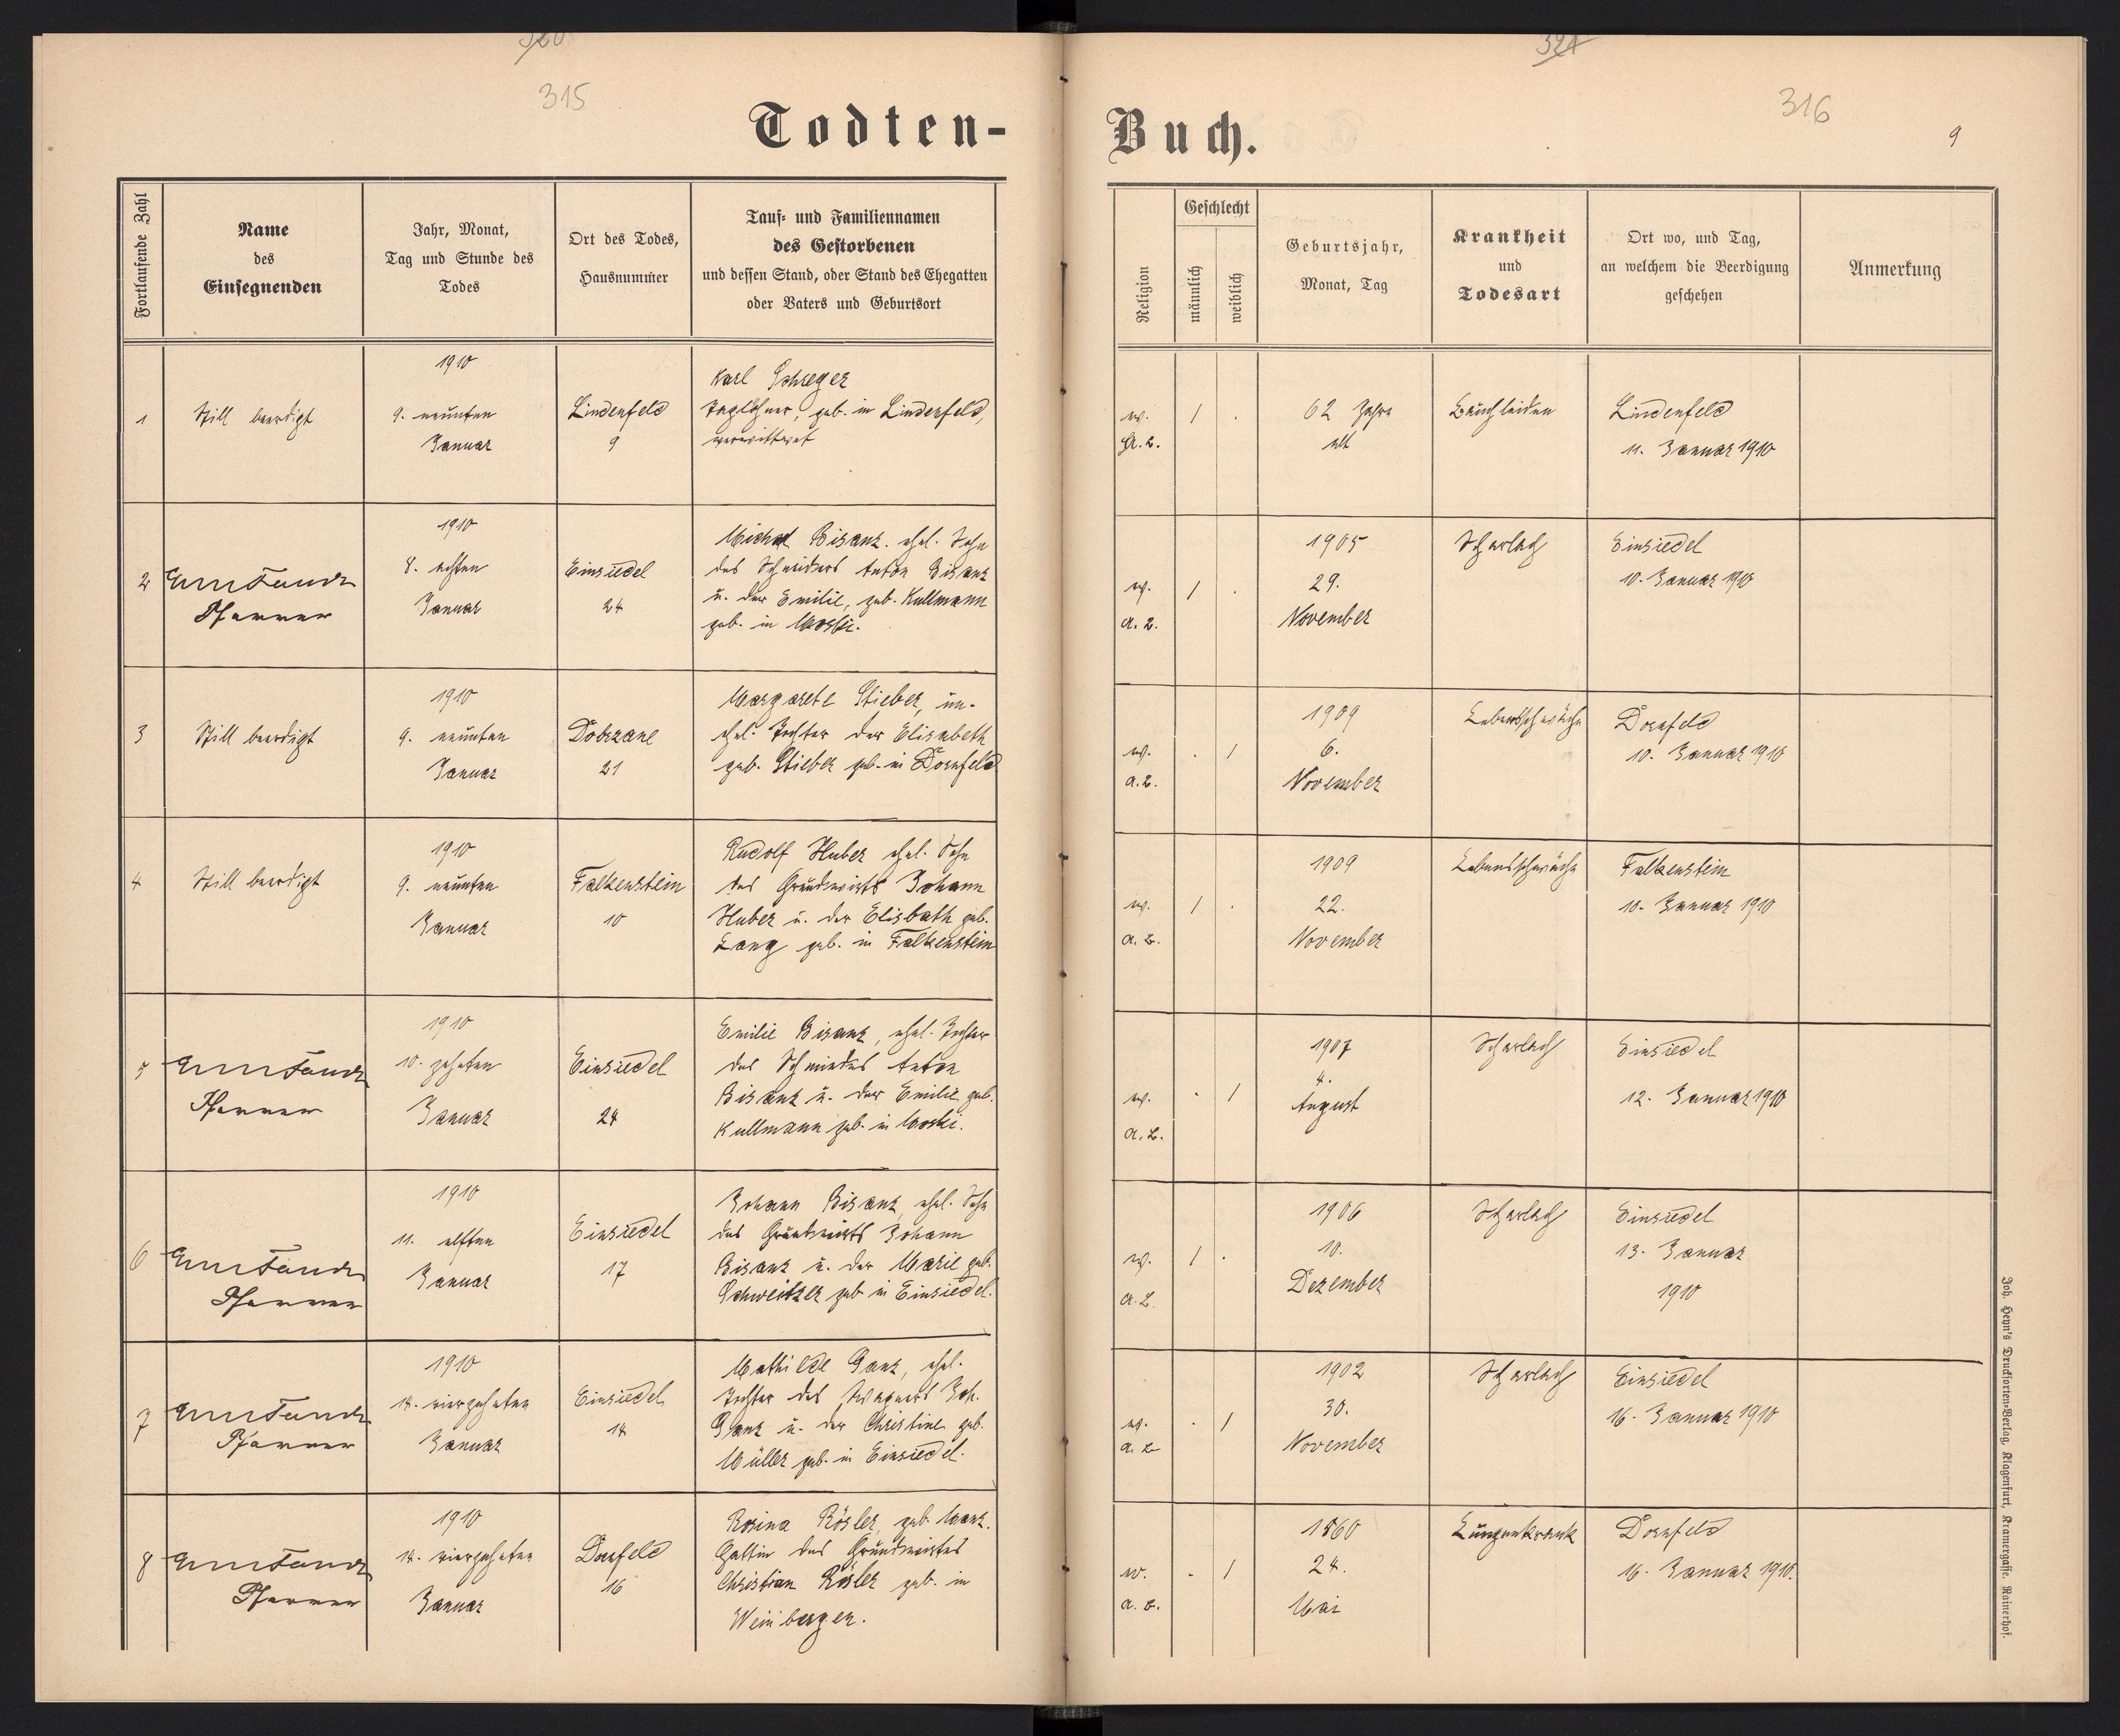 320
315
Todten-
Fortlaufende Zahl
Name
des
Einsegnenden
Jahr, Monat,
Tag und Stunde des
Todes
Ort des Todes,
Hausnummer
Tauf- und Familiennamen
des Gestorbenen
und dessen Stand, oder Stand des Ehegatten
oder Vaters und Geburtsort
1
Still beerdigt
1910
9. neunten
Januar
Lindenfeld
9
Karl Schreyer
Taglöhner, geb. in Lindenfeld,
verwittwet
2
Pfarrer
1910
8. achten
Januar
Einsiedel
24
Michael Bisanz. ehel. Sohn
des Schmiedes Anton Bisanz
u. der Emilie, geb. Kullmann
geb. in
3
Still beerdigt
1910
9. neunten
Januar
Dobrzane
21
Margarete Stieber, un-
ehel. Tochter der Elisabeth
geb. Stieber geb. in Dornfeld
4
Still beerdigt
1910
9. neunten
Januar
Falkenstein
10
Rudolf Huber ehel. Sohn
des Grundwirts Johann
Huber u. der Elisbath geb.
Lang geb. in Falkenstein
5
Pfarrer
1910
10. zehnten
Januar
Einsiedel
24
Emilie Bisanz, ehel. Tochter
des Schmiedes Anton
Bisanz u. der Emilie geb.
Kullmann geb. in
6
Pfarrer
1910
11. elften
Januar
Einsiedel
17
Johann Bisanz, ehel. Sohn
des Grundwirts Johann
Bisanz u. der Marie geb.
Schweitzer geb in Einsiedel.
7
Pfarrer
1910
14. vierzehnten
Januar
Einsiedel
14
Mathilde Ganz, ehel.
Tochter des Wagners Joh.
Ganz u. der Christine geb.
Müller geb. in Einsiedel.
8
Pfarrer
1910
14. vierzehnten
Januar
Dornfeld
16
Rosina Rösler, geb. Manz.
Gattin des Grundwirtes
Christian Rösler geb. in
Weinbergen.
321
316
9
Buch.
Religion
Geschlecht
männlich
weiblich
Geburtsjahr,
Monat, Tag
Krankheit
und
Todesart
Ort wo, und Tag,
an welchem die Beerdigung
geschehen
Anmerkung
ev.
A. B.
1 .
62 Jahre
alt
Bauchleiden
Lindenfeld
11. Januar 1910
ev.
A. B.
1 .
1905
29.
November
Scharlach
Einsiedel
10. Januar 1910
ev.
A. B.
. 1
1909
6.
November
Lebensschwäche
Dornfeld
10. Januar 1910
ev.
A. B.
1 .
1909
22.
November
Lebensschwäche
Falkenstein
10. Januar 1910
ev.
A. B.
. 1
1907
4.
August
Scharlach
Einsiedel
12. Januar 1910
ev.
A. B.
1 .
1906
10.
Dezember
Scharlach
Einsiedel
13. Januar
1910
ev.
A. B.
. 1
1902
30.
November
Scharlach
Einsiedel
16. Januar 1910
ev.
A. B.
. 1
1860
24.
Mai
Lungenkrank
Dornfeld
16. Januar 1910.
Joh. Heyn's Drucksorten-Verlag, Klagenfurt, Kramergasse, Rainerhof.